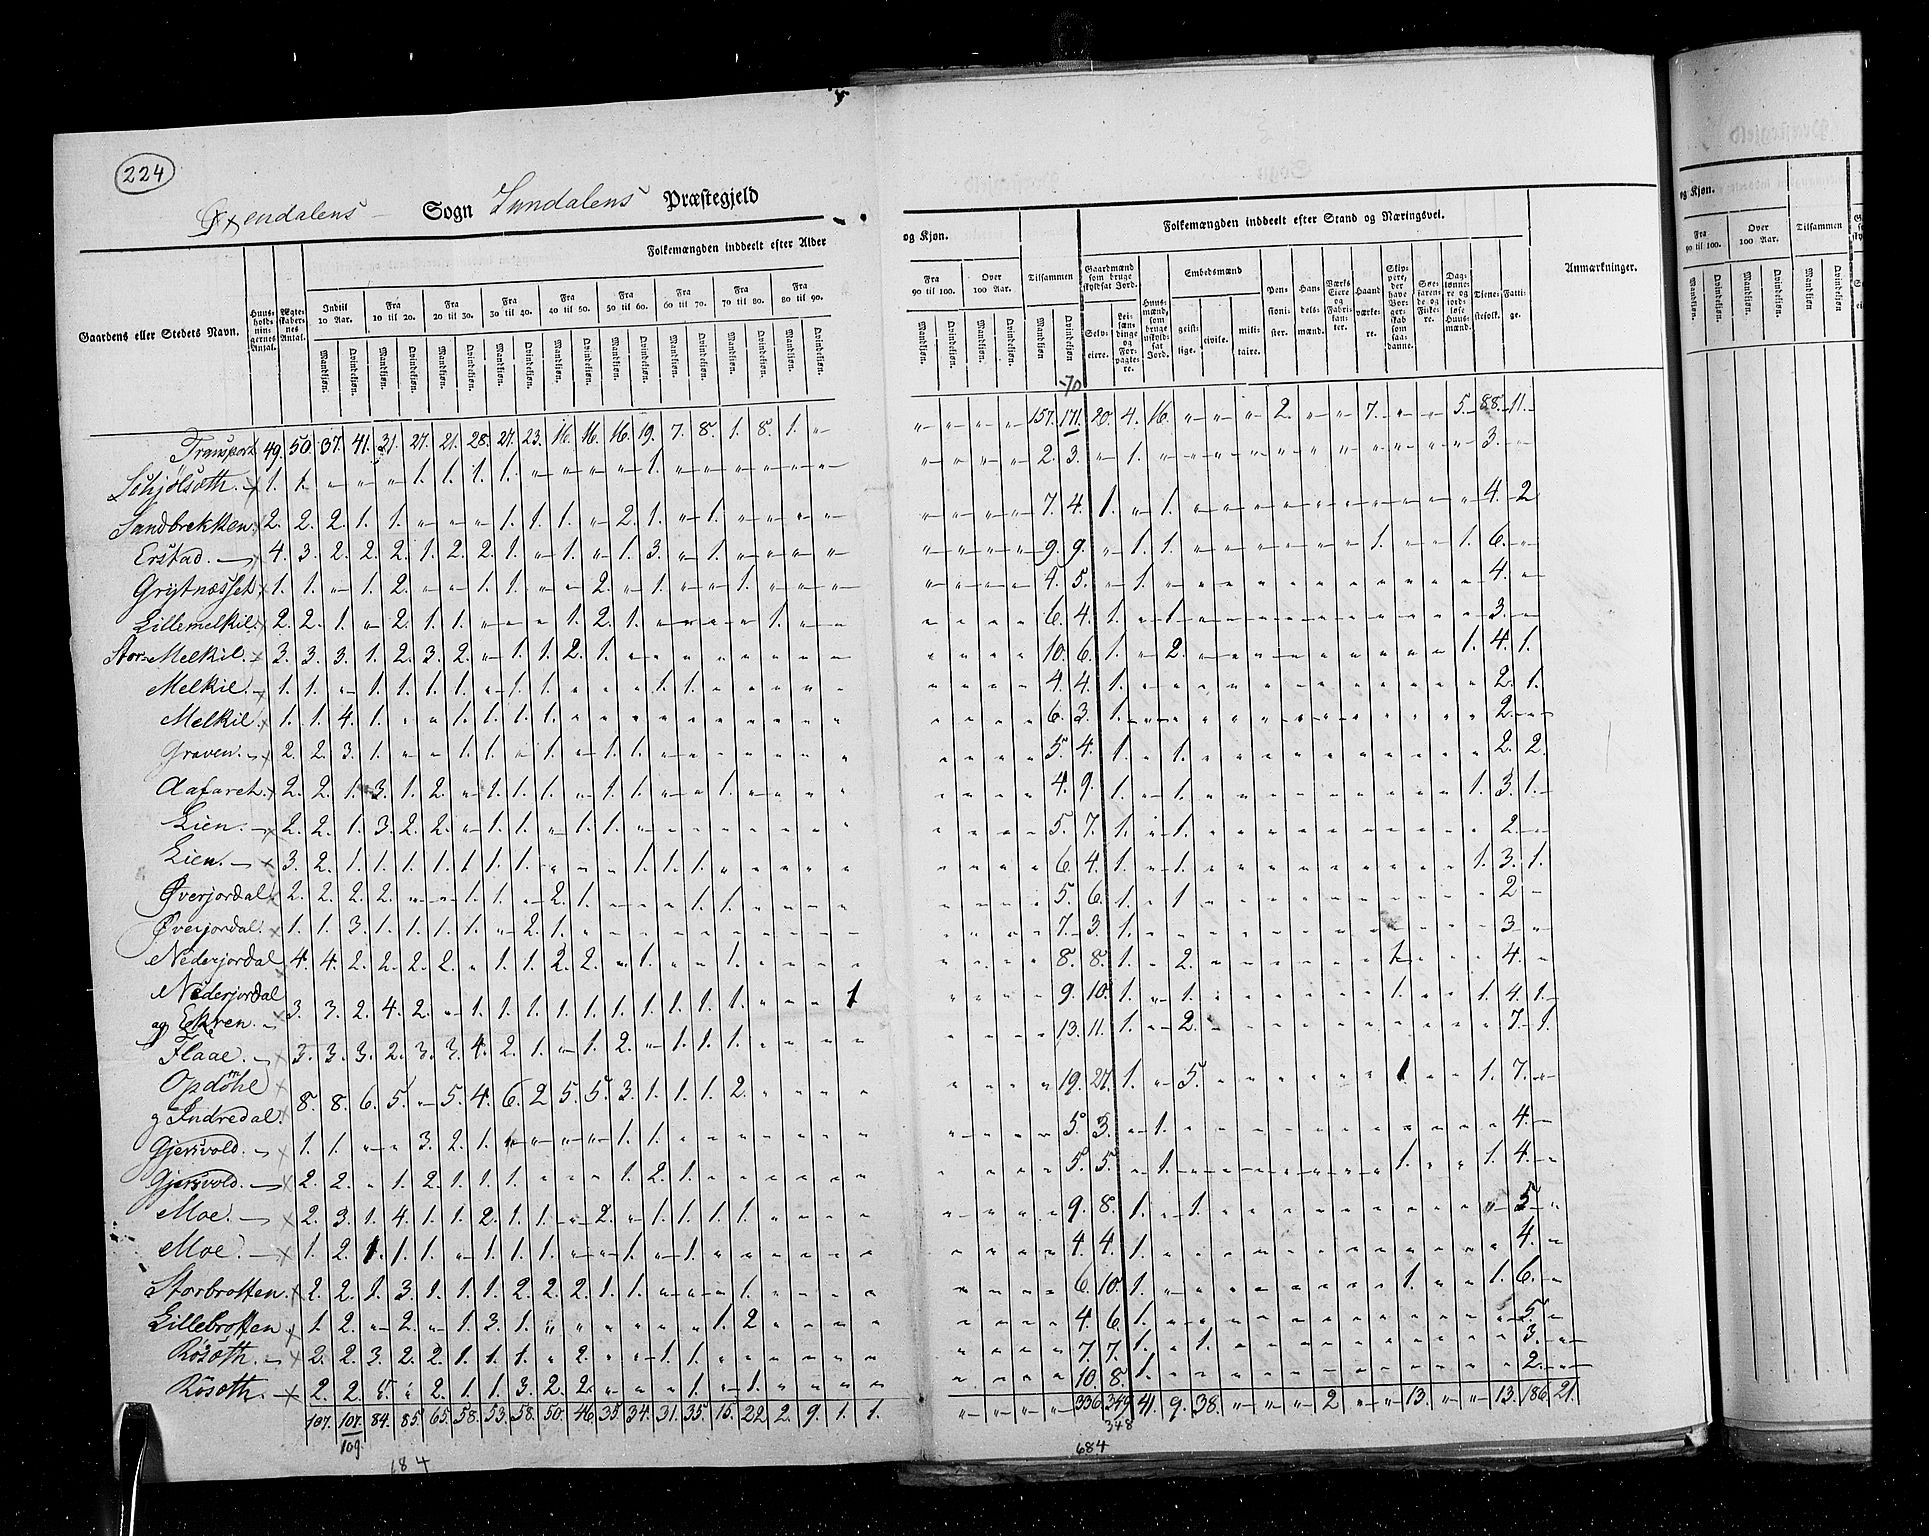 224
Øxendalens Sogn Sundalens Præstegjeld
Folkemængden inddeelt efter Alder og Kjøn.
Folkemængden inddeelt efter Stand og Næringsvei.
Gaardens eller Stedets Navn.
Huus-holdningernes Antal.
Ægteskabernes Antal.
Indtil 10 Aar.
Fra 10 til 20.
Fra 20 til 30.
Fra 30 til 40.
Fra 40 til 50.
Fra 50 til 60.
Fra 60 til 70.
Fra 70 til 80.
Fra 80 til 90.
Fra 90 til 100.
Over 100 Aar.
Tilsammen
Mandkjøn. Qvindekjøn.
Gaardmænd som bruge skyldsat Jord.
Selveiere.
Leilændinge og Forpagtere.
Huusmænd, som bruge uskyldsat Jord.
Embedsmænd
geistlige. civile. militaire.
Pensionister.
Handelsmænd.
Værks Eiere og Fabrikanter.
Haandværkere.
Skippere, der have Borgerskab som saadanne.
Søefarende og Fiskere.
Daglønnere og jordløse Huusmænd.
Tjenestefolk.
Fattige.
Anmærkninger.
Transport 49. 50. 37. 41. 31. 27. 21. 28. 27. 23. 16. 16. 16. 19. 7. 8. 1. 8. 1. „ „ „ „ „ 157. 171. 20. 4. 16. „ „ „ 2. „ „ 7. „ „ 5. 88. 11.
Schjølsæth. 1. 1. 2. 3. „ 1. 3.
Sandbrekken 2. 2. 2. 1. 1. „ „ „ 1. 1. 1. „ 2. 1. „ 1. 7. 4. 1. „ 1. 4. 2
Erstad. 4. 3. 2. 2. 2. 1. 2. 2. 1. „ 1. „ 1. 3. „ 1. 9. 9. „ 1. 1. 1. 1. 6.
Grytnæsset 1. 1. „ 1. 2. „ „ 1. 1. „ „ 2. „ 1. „ „ 1. 4. 5. „ 1. 4.
Lillemelkil. 2. 2. 1. „ 2. 1. 1. „ „ „ 1. 2. 1. 1. 6. 4. 1. „ 1. 3.
Stor-Melkil. 3. 3. 3. 1. 2. 3. 2. „ 1. 1. 2. 1. 10. 6. 1. „ 2. 1. 4. 1.
Melkil. 1. 1. „ 1. 1. 1. 1. „ 1. 1. „ „ „ 1. 1. 4. 4. 1. 2. 1.
Melkil 1. 1. 4. 1. „ „ 1. 1. 1. 1. 6. 3. 1. 2.
Graven. 2. 2. 3. 1. „ „ 1. 1. „ 1. „ 1. 1. 5. 4. 1. „ 1. 2. 2.
Aafaret. 2. 2. 1. 3. 1. 2. „ 1. 1. 1. „ 1. 1. „ „ 1. 4. 9. 1. „ 1. 1. 3. 1.
Lien. 2. 2. 1. 3. 2. 2. „ 1. 1. „ 1. 1. 5. 7. 1. „ 1. 2.
Lien. 3. 2. 1. 1. 1. 1. 1. 1. 1. „ „ „ 1. 1. 1. 6. 4. 1. „ 1. 1. 3. 1.
Øverjordal 2. 2. 2. 2. „ „ 1. 1. „ 2. 1. „ „ „ 1. 1. 5. 6. 1. „ 1 2
Øverjordal. 1. 1. 3. 1. 1. 1. 1. „ 2. 1. 7. 3. 1. 3
Nederjordal 4. 4. 2. 2. 2. 2. „ 1. 1. 2. 2. „ 1. „ „ 1. 8. 8. 1. „ 2. 1. 4.
Nederjordal
og Ekren. 3. 3. 2. 4. 2. „ 1. 1. 1. 1. 1. 1. 1. 1. 1. 1. „ „ „ 1 9. 10. 1. „ 1. 1. 1. 4. 1.
Flaae. 3. 3. 3. 2. 3. 3. 4. 2. 1. „ 1. 2. „ 1. 1. 1. 13. 11. 1. „ 2. 7. 1.
Opdøhl
og Indredal. 8. 8. 6. 5. „ 5. 4. 6. 2 5. 5. 3. 1. 1. 1. 2. 19. 27. 1. „ 5. 1 1. 7.
Gjersvold. 1. 1. „ „ 3. 2. 1. „ „ „ „ 1. 1. 5. 3. „ 1. 4.
Gjersvold. 2. 2. „ 1. 2. 1. 1. 1. „ „ „ 1. 2. 1. 5. 5. „ 1. 1. 1. 4.
Moe. 2. 3. 1. 4. 1. 1. 2. 1. 1. „ 2. „ 1. 1. 1. 1. 9. 8. 1. „ 1. 5.
Moe. 1. 2. 1. 1. 1. „ 1. 1. 1. „ „ 1. „ 1. 4. 4. 1. 4.
Storbrotten. 2. 2. 1. 3. 1. 1. 1. 2. 2. 2. 1. 1. „ „ „ 1. 6. 10. 1. 1. 1. 6.
Lillebrotten 1. 2. „ 2. „ 1. 3. 1. 1. 2. 4. 6. 1. 5.
Røsæth. 2. 2. 3. 2. 2. 1. 1. 1. „ 2. „ „ 1. 1. 7. 7. 1. „ 1. 3.
Røsæth. 2. 2. 5. „ 2. 1. 1. 3. 2. 2. „ „ „ 1. „ 1. 10. 8. 1. 2.
107. 107. 84. 85. 65. 58. 53. 58. 50. 46. 35. 34. 31. 35. 15. 22. 2. 9. 1. 1. „ „ „ „ 336. 349 41. 9. 38. „ „ „ 2 „ „ 13. „ „ 13. 186. 21.
109 348
684